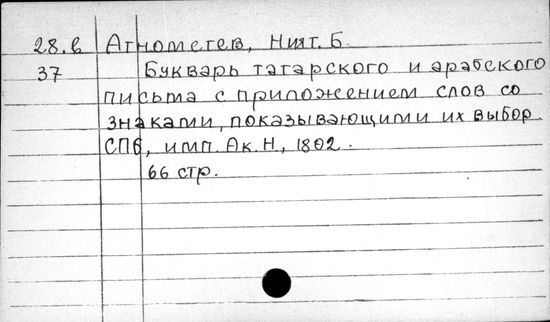 28.в Агнометев, Ният. Б.
37 Букварь татарского и арабского
письма с приложением слов со
знаками, показывающими их выбор.
СПб, имп. Ак. Н., 1802.
66 стр.